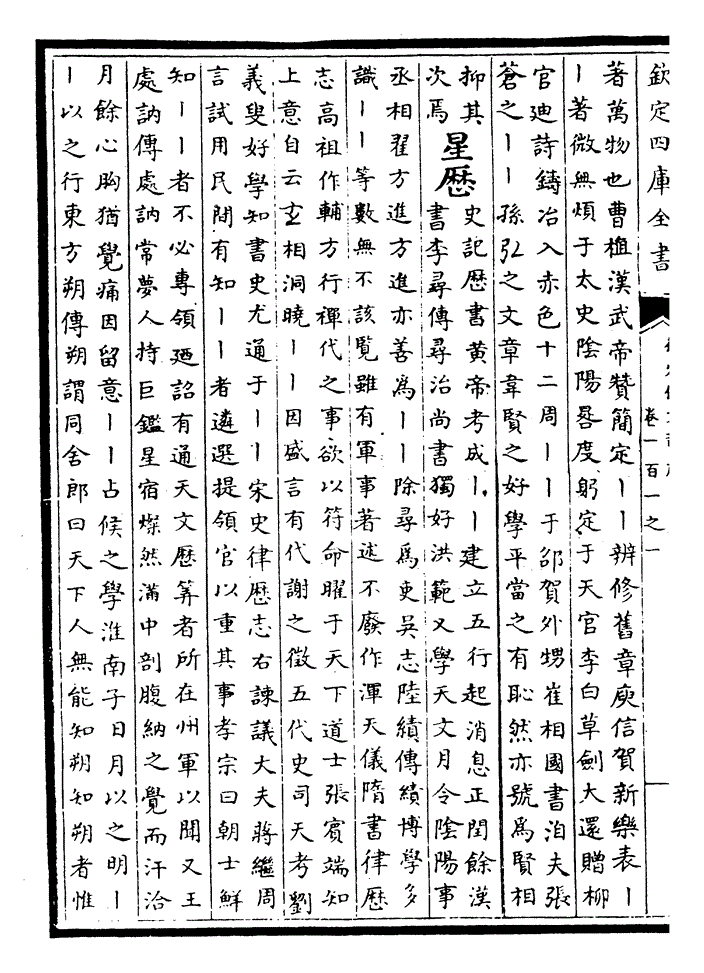 欽定四庫全書
卷一百一之一
著萬物也曹植漢武帝贊簡定丨丨辨修舊章庾信賀新樂表丨
丨著微無煩于太史陰陽晷度躬定于天官李白草創大還贈柳
官迪詩鑄冶入赤色十二周丨丨于邵賀外甥崔相國書洎夫張
蒼之丨丨孫弘之文章韋賢之好學平當之有恥然亦號為賢相
抑其
次焉
星歴
史記歴書黄帝考成丨丨建立五行起消息正閏餘漢
書李尋傳尋治尚書獨好洪範又學天文月令陰陽事
丞相翟方進方進亦善為丨丨除尋為吏吳志陸績傳績博學多
識丨丨等數無不該覽雖有軍事著述不廢作渾天儀隋書律歴
志高祖作輔方行禪代之事欲以符命曜于天下道士張賔端知
上意自云玄相洞曉丨丨因盛言有代謝之徵五代史司天考劉
義叟好學知書史尤通于丨丨宋史律歴志右諫議大夫蔣繼周
言試用民間有知丨丨者遴選提領官以重其事孝宗曰朝士鮮
知丨丨者不必專領廼詔有通天文歴筭者所在州軍以聞又王
處訥傳處訥常夢人持巨鑑星宿燦然滿中剖腹納之覺而汗洽
月餘心胸猶覺痛因留意丨丨占候之學淮南子日月以之明丨
丨以之行東方朔傳朔謂同舍郎曰天下人無能知朔知朔者惟